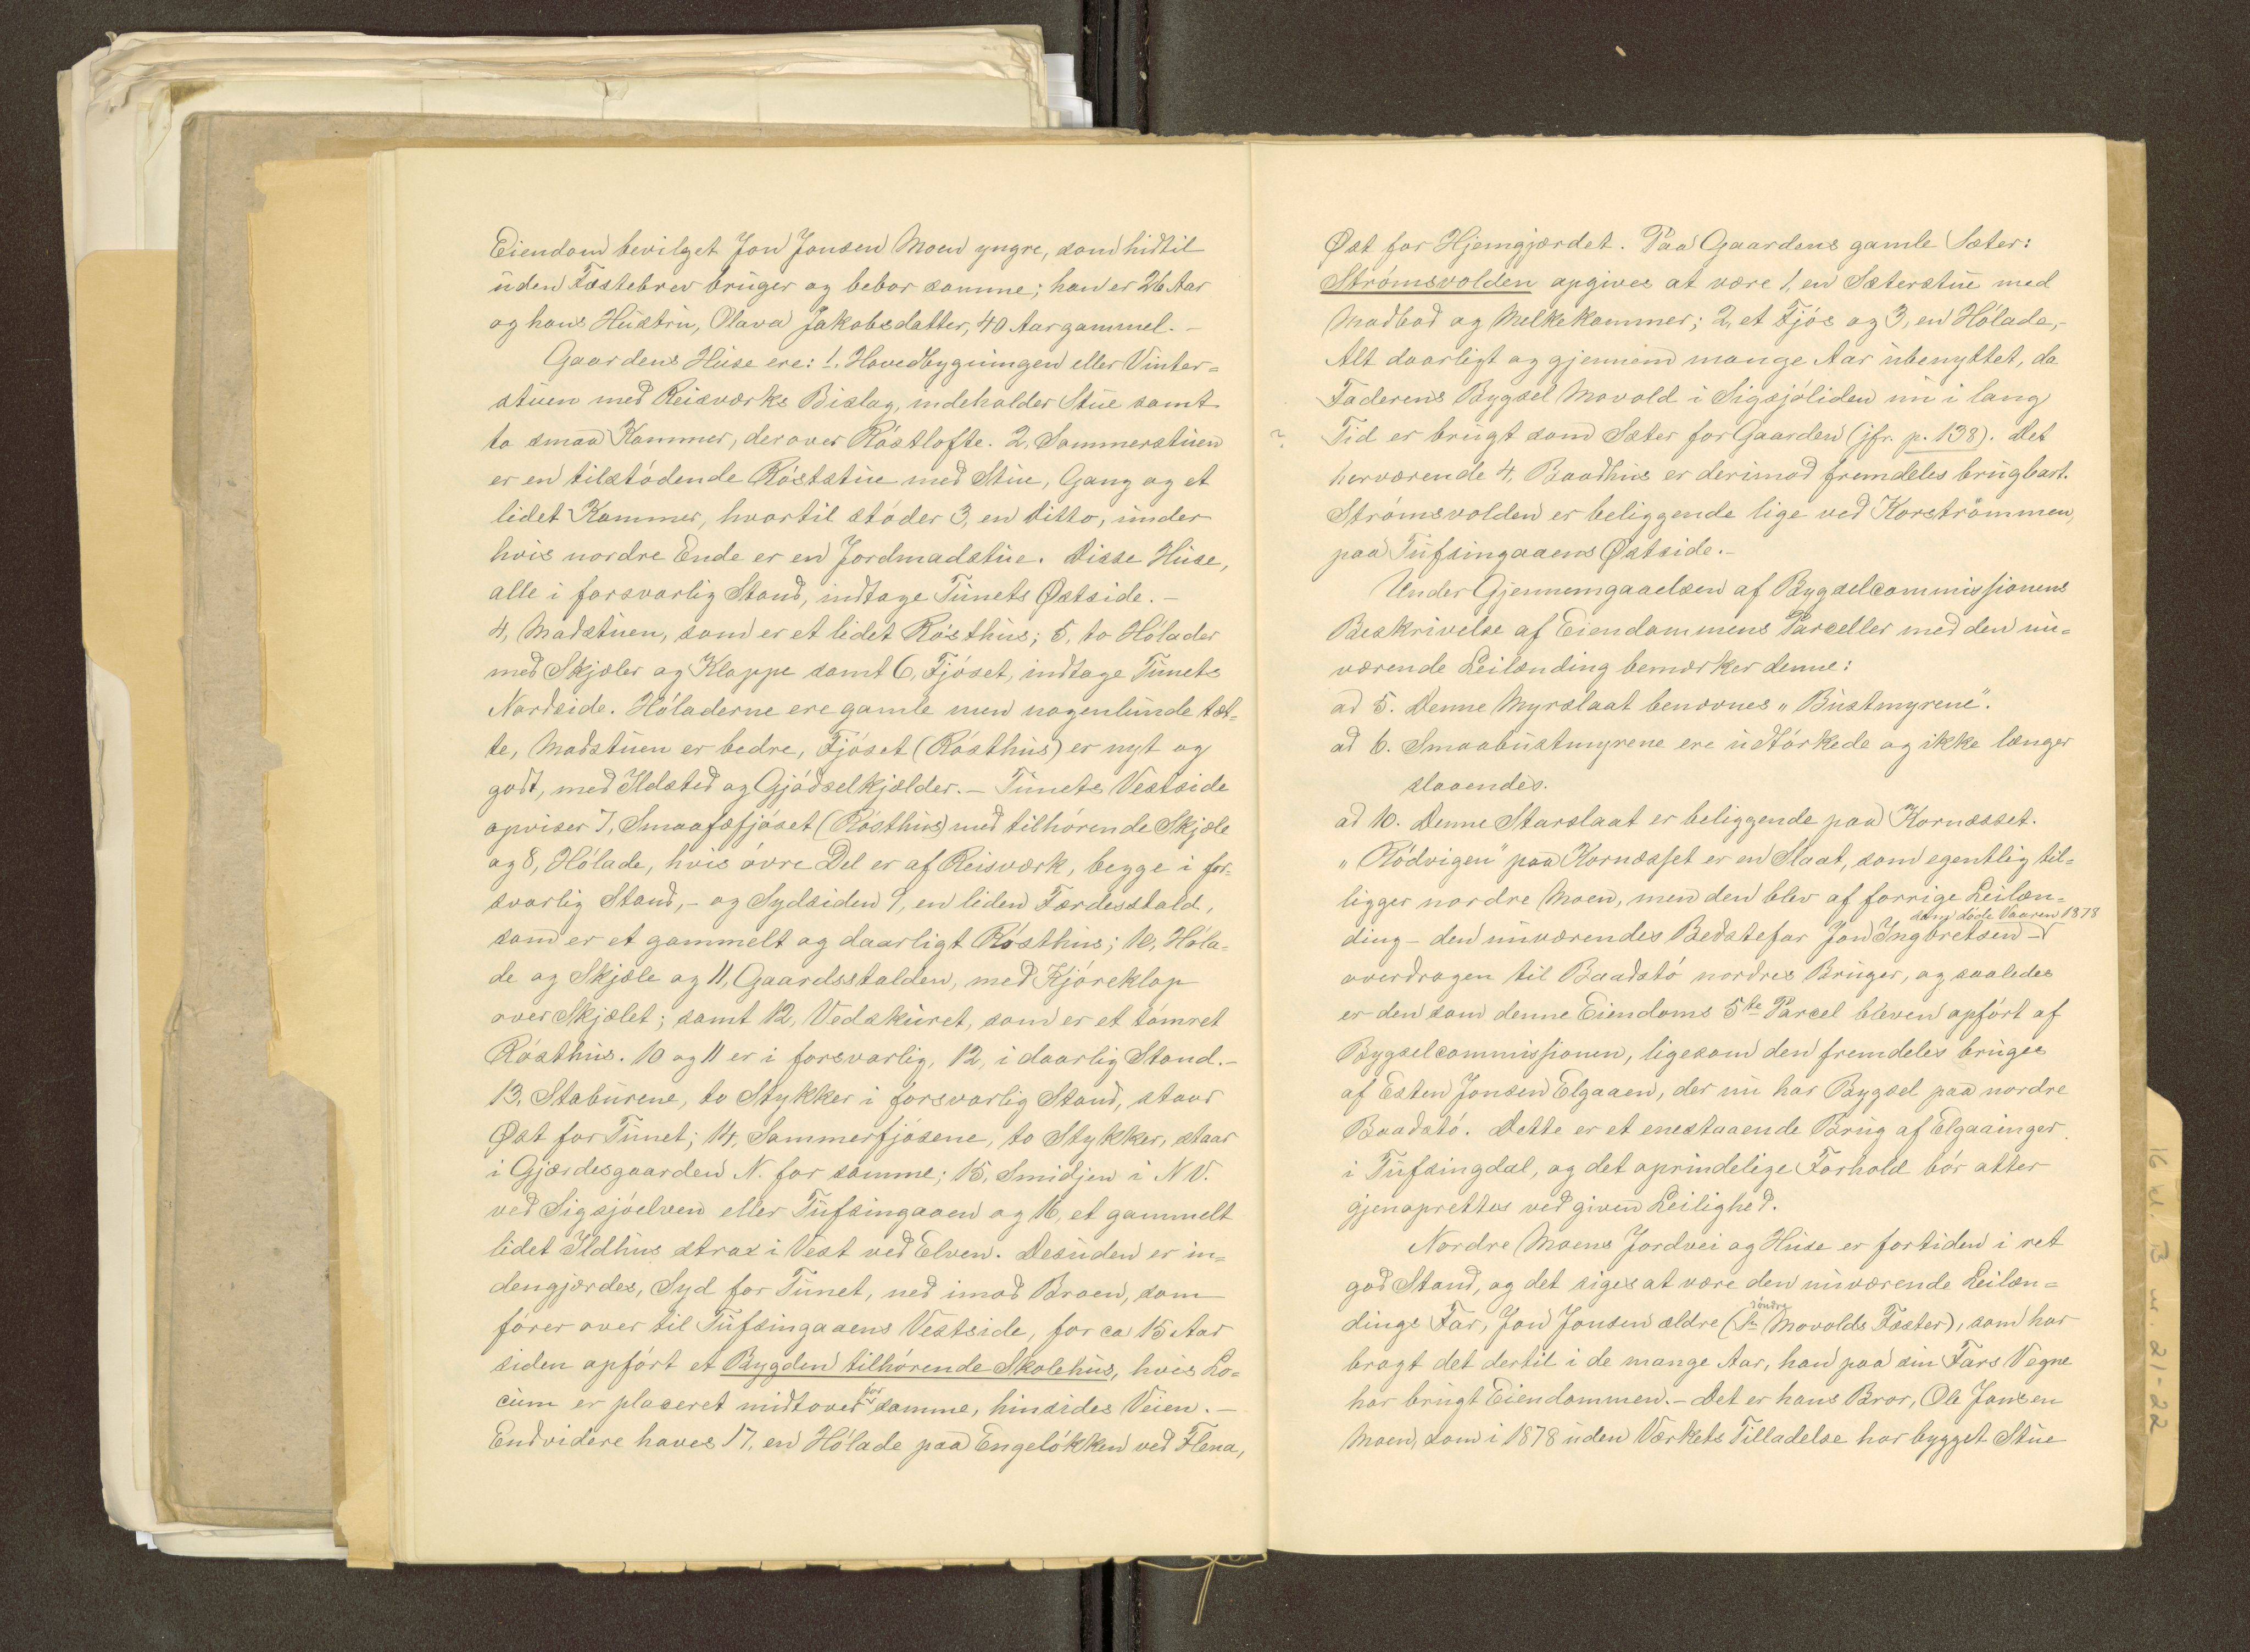 Eiendom bevilget Jon Jonsen Moen yngre, som hidtil
uden Fæstebrev bruger og bebor samme; han er 26 Aar
og hans Hustru, Olava Jakobsdatter, 40 Aar gammel. -
Gaardens Huse ere: 1. Hovedbygningen eller Vinter=
stuen med Reisværks Bislag, indeholder Stue samt
to smaa Kammer, derover Röstlofte. 2, Sommerstuen
er en tilstödende Röststue med Stue, Gang og et
lidet Kammer, hvortil stöder 3, en Ditto, under
hvis nordre Ende er en Jordmadstue. Disse Huse,
alle i forsvarlig Stand, indtage Tunets Østside. -
4, Madstuen, som er et lidet Rösthus; 5, to Hölader
med Skjæler og Kloppe samt 6, Fjöset, indtage Tunets
Nordside. Höladerne ere gamle men nogenlunde tæt=
te, Madstuen er bedre, Fjöset (Rösthus) er nyt og
godt, med Ildsted og Gjödselkjælder. - Tunets Vestside
opviser 7, Smaafæfjöset (Rösthus) med tilhörende Skjæle
og 8, Hölade, hvis övre Del er af Reisværk, begge i for=
svarlig Stand, - og Sydsiden 9, en liden Færdesstald,
som er et gammelt og daarligt Rösthus; 10, Höla=
de og Skjæle og 11, Gaardsstalden, med Kjöreklop
over Skjælet; samt 12, Vedskuret, som er et tömret
Rösthus. 10 og 11 er i forsvarlig, 12, i daarlig Stand. -
13, Staburene, to Stykker i forsvarlig Stand, staar
Øst for Tunet; 14, Sommerfjösene, to Stykker, staar
i Gjærdesgaarden N. for samme; 15, Smidjen i N V.
ved Sigsjöelven eller Tufsingaaen og 16, et gammelt
lidet Ildhus strax i Vest ved Elven. Desuden er in=
dengjærdes, Syd for Tunet, ned imod Broen, som
förer over til Tufsingaaens Vestside, for ca 15 Aar
siden opfört et Bygden tilhörende Skolehus, hvis Lo=
cum er placeret midtover for samme, hinsides Veien. -
Endvidere haves 17, en Hölade paa Engelökken ved Flena,
Øst for Hjemgjærdet. Paa Gaardens gamle Sæter:
Strömsvolden opgives at være 1, en Sæterstue med
Madbod og Melkekammer; 2, et Fjös og 3, en Hölade, -
Alt daarligt og gjennem mange Aar ubenyttet, da
Faderens Bygsel Movold i Sigsjöliden nu i lang
? Tid er brugt som Sæter for Gaarden (jfr. p. 138). Det
herværende 4, Baadhus er derimod fremdeles brugbart.
Strömsvolden er beliggende lige ved Korströmmen,
paa Tufsingaaens Østside. -
Under Gjennemgaaelsen af Bygselcommissionens
Beskrivelse af Eiendommens Parceller med den nu=
værende Leilænding bemærker denne:
ad 5. Denne Myrslaat benævnes „Bustmyrene".
ad 6. Smaabustmyrene ere udtörkede og ikke længer
slaaendes.
ad 10. Denne Starslaat er beliggende paa Kornæsset.
„Rödvigen" paa Kornæsset er en Slaat, som egentlig til=
ligger nordre Moen, men den blev af forrige Leilæn=
som döde Vaaren 1878
ding - den nuværendes Bedstefar Jon Ingbretsen -
overdragen til Baadstö nordres Bruger, og saaledes
er den som denne Eiendoms 5te Parcel bleven opfört af
Bygselcommissionen, ligesom den fremdeles bruges
af Esten Jonsen Elgaaen, der nu har Bygsel paa nordre
Baadstö. Dette er et enestaaende Brug af Elgaainger
i Tufsingdal, og det oprindelige Forhold bör atter
gjenoprettes ved given Leilighed.
Nordre Moens Jordvei og Huse er fortiden i ret
god Stand, og det siges at være den nuværende Leilæn=
söndre
dings Far, Jon Jonsen ældre ( Movolds Fæster), som har
bragt det dertil i de mange Aar, han paa sin Fars Vegne
har brugt Eiendommen. - Det er hans Bror, Ole Jonsen
Moen, som i 1878 uden Værkets Tilladelse har bygget Stue
16 kl. B nr. 21-22